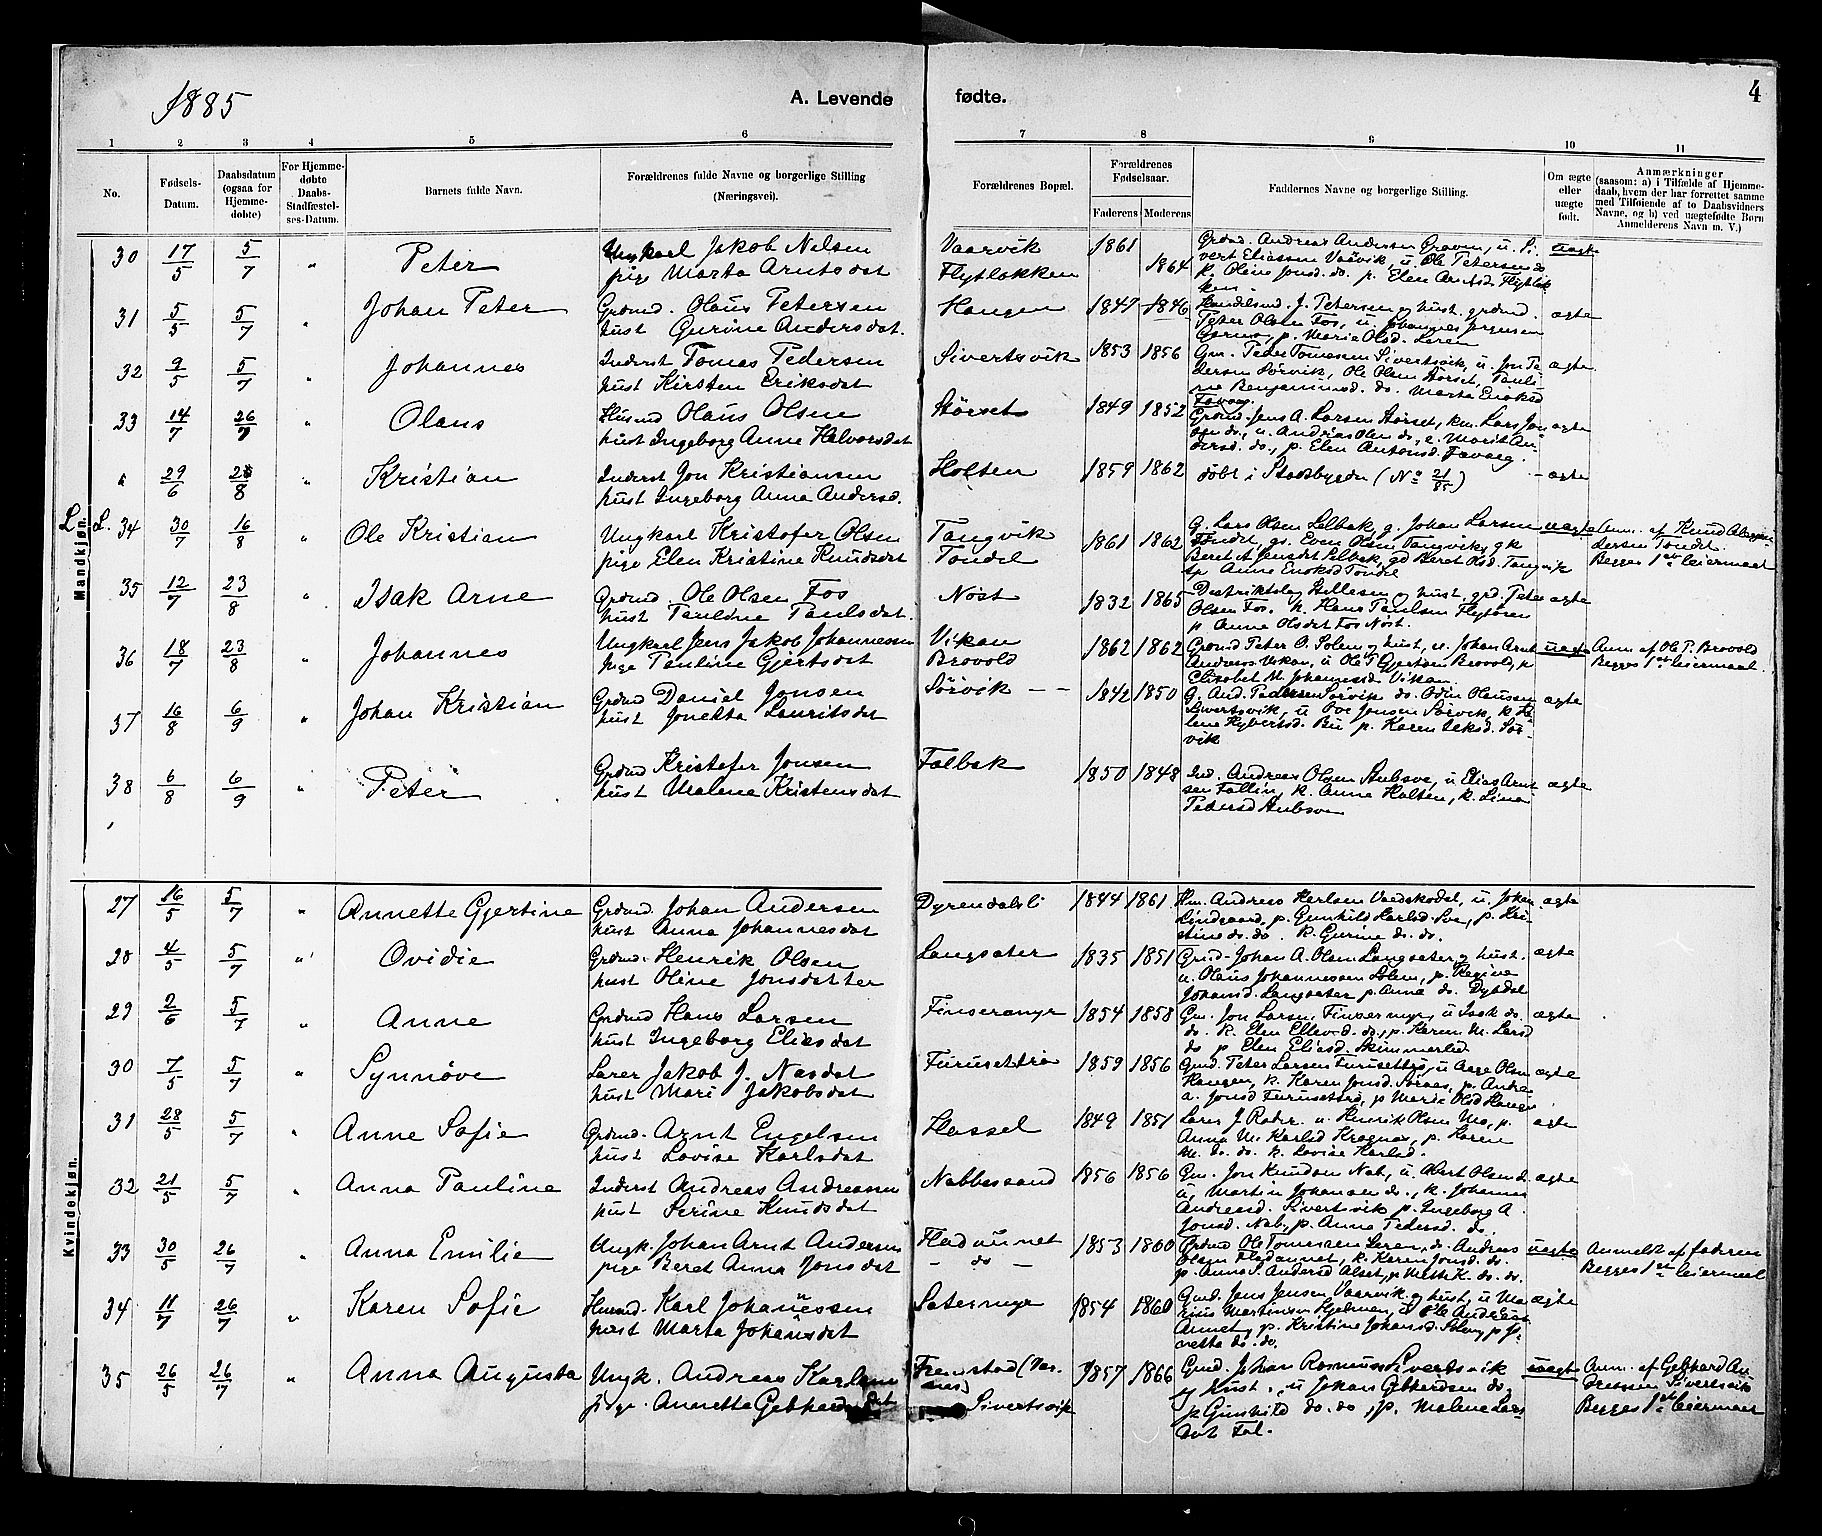 1885
A. Levende fødte. 4
1 2 3 4 5 6 7 8 9 10 11
No.
Fødsels-
Datum.
Daabsdatum
(ogsaa for
Hjemme-
døbte)
For Hjemme-
døbte
Daabs-
Stadfæstel-
ses-Datum.
Barnets fulde Navn.
Forældrenes fulde Navne og borgerlige Stilling
(Næringsvei).
Forældrenes Bopæl.
Forældrenes
Fødselsaar.
Faderens Moderens
Faddernes Navne og borgerlige Stilling.
Om ægte
eller
uægte
født.
Anmærkninger
(saasom: a) i Tilfælde af Hjemme-
daab, hvem der har forrettet samme
med Tilføiende af to Daabsvidners
Navne, og b) ved uægtefødte Børn
Anmelderens Navn m. V.)
Mandkjøn.
30 17/5 5/7 " Peter
Ungkarl Jakob Nelsen
pige Marta Arntsdat
Vaarvik
Flytløkken
1861
1864
Grdmd. Andreas Andersen Graven, u. Si-
vert Eliassen Vaarvik, u Ole Petersen do
k. Oline Jonsd. do. p. Elen Arntsd. Flytløk
ken.
uægte
31 5/5 5/7 " Johan Peter
Grdmd. Olaus Petersen
hust Gurine Andersdat.
Haugen
1847 1846
Handelsmd. J. Petersen og hust. grdmd.
Peter Olsen Fos, u. Johannes Jørgensen
p. Marie Olsd. Leren
ægte
32 9/5 5/7 " Johannes
Inderst Tomas Pedersen
hust Kirsten Eriksdat
Sivertsvik
1853 1856
Gm. Peder Tomesen Sivertsvik, u. Jon Pe
dersen Sørvik, Ole Olsen Størset, Pauli-
ne Benjaminsd. do. Marta Enoksd
Favaag.
ægte
33 14/7 26/7 " Olaus
Husmd Olaus Olsen
hust Ingeborg Anne Halvorsdat
Størset
1849 1852
Grdmd. Jens A. Larsen Størset, km. Lars Jon
sen do., u. Andreas Olsen do, e. Marit An-
dersd. do., p. Elen Antonsd. Favaag.
ægte
" 29/6 23/8 " Kristian
Inderst Jon Kristiansen
hust Ingeborg Anna Andersd.
Holten
1859 1862
døbt i Stadsbygden (No 21/85)
ægte
L. L. 34 30/7 16/8 " Ole Kristian
Ungkarl Kristofer Olsen
pige Elen Kristine Knudsdat
Tangvik
Tøndel
1861 1862
G. Lars Olsen Selbak, g. Johan Larsen
Tøndel, gs. Even Olsen Tangvik, gk
Beret A Jensdat Selbak, gd Beret Olsd. Tangvik
tp Anne Enoksd Tøndel
uægte
Anm. af Knud
dersen Tøndel.
Begges 1ste leiermaal
35 12/7 23/8 " Isak Arne
Grdmd. Ole Olsen Fos
hust Pauline Paulsdat.
Nøst
1832 1865
Distriktslæg Hillesen og hust. grd. Peter
Olsen Fos, k. Hans Paulsen Flytøren
p Anne Olsdat Fos Nøst.
ægte
36 18/7 23/8 " Johannes
Ungkarl Jens Jakob Johannessen
Pige Pauline Gjertsdat
Vikan
Brovold
1862 1862
Grdmd Peter O. Solem og hust, u. Johan Arnt
Andreas. Vikan, u Ole T Gjertsen Brovold, p
Elisabet M Johannesd. Vikan
uægte
Anm. af Ole P. Brovold
Begges 1ste leiermaal.
37 16/8 6/9 " Johan Kristian
Grdmd Daniel Jonsen
hust Jonetta Lauritsdat
Sørvik
1842 1850
G. And. Pedersen Sørvik do. Odin Olaussen
Sivertsvik, u Ove Jensen Sørvik, k He-
lene Nybertsd. Bu p. Karen Isaksd. Sør-
vik
ægte
38 6/8 6/9 " Peter
Grdmd Kristofer Jonsen
hust Malene Kristensdat
Folbek
1850 1848
Ind. Andreas Olsen Stubsve, u Elias Arnt
sen Follin, k. Anne Holten, k. Lina
Pedersd Stubsve
ægte
Kvindekjøn.
27 16/5 5/7 " Annette Gjertine
Grdmd. Johan Andersen
hust Anna Johannesdat
Dyrendalsli
1844 1861
Hm. Andreas Karlsen Vaedskodal, u. Johan
Lindgaard, p. Gunhild Karlsd. Sve, p. Kri
stine do. do. k. Gurine do. do.
ægte
28 4/5 5/7 " Ovidie
Grdmd. Henrik Olsen
hust Oline Jonsdatter
Langsæter
1835 1851
Grdmd. Johan A. Olsen Langsæter og hust.
u. Olaus Johannessen Solem, p. Regine
Johansd. Langsæter p. Anna do. Dybdal
ægte
29 2/6 5/7 " Anne
Grdmd Hans Larsen
hust Ingeborg Eliasdat
Finserømyr
1854 1858
Gm. Jon Larsen Finsermyr, u Isak do.
do. k. Elen Ellevd. do., p Karen M. Larsd
do p. Elen Eliasd. Skimmerlid.
ægte
30 7/5 5/7 " Synnøve
Lærer Jakob J. Næsdat
hust Mari Jakobsdat
Furusettrø
1859 1856
Gmd. Peter Larsen Furusettrø, u Aage Olsen
Haugen, k. Karen Jonsd. Sørnes, p. Andre
a. Jonsd Furusettrø, p Maria Olsd Haugen
ægte
31 28/5 5/7 " Anne Sofie
Grdmd. Arnt Engelsen
hust Lovise Karlsdat
Hassel
1849 1851
Lars J. Røder. u Henrik Olsen Mo, p.
Anna M. Karlsd Kragnæs, p. Karen
M. do. do. k. Lovise Karlsd.
ægte
32 21/5 5/7 " Anna Pauline
Inderst Andreas Andreassen
hust Serine Knudsdat
Nabbesund
1856 1856
Gm. Jon Knudsen Nab, u. Olert Olsen d.
u, Martin Johansen do., k. Johanna
Andreasd. Sivertsvik p. Ingeborg A
Jonsd. Nab, p. Anna Pedersd. do.
ægte
33 30/5 26/7 " Anna Emilie
Ungk. Johan Arnt Andersen
pige Beret Anna Jonsdat
Fladaunet
- do -
1853 1860
Grdmd Ole Tomessen Leren, do. Andreas
Olsen Fladaunet, k. Karen Jonsd. do.
p. Anna S. Andersd Alset, p. Mette K. do. do.
uægte
Anmeldt af faderen
Begges 1ste leiermaal
34 11/7 26/7 " Karen Sofie
Husmd. Karl Johannessen
hust Marta Johansdat
Sætermyr
1854 1860
Gmd. Jens Jensen Vaarvik og hust, u Ma
rius Martinsen Gjelmen, u Ole Andreas
Aunet, p. Kristine Johansd. Solberg p Jo-
netta do. do.
ægte
35 26/5 26/7 " Anna Augusta
Ungk. Andreas Karlsen
pige. Annetta Gebhardsdat
Fremstad (Vær-
nes)
Sivertsvik
1857 1866
Gmd. Johan Rasmussen Sivertsvik
og hust., u Johan Gebhardsen do.,
p Gunhild do. do, p. Malene Lars
dat Fal.
uægte
Anm. af Gebhard An-
dressen Sivertsvik
Begges 1ste leiermaal